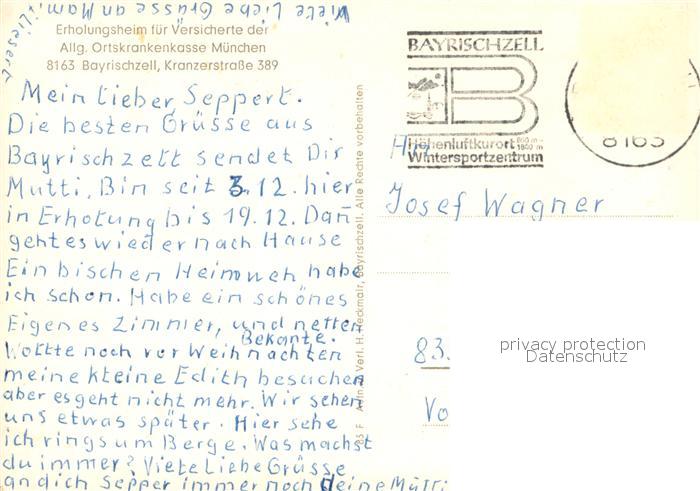 Viele Liebe Grüsse an Mami
Erholungsheim für Versicherte der
Allg. Ortskrankenkasse München
8163 Bayrischzell, Kranzerstraße 389
Mein lieber, Seppert.
Die besten Grüsse aus
Bayrischzell sendet Dir
Mutti. Bin seit 3.12. hier
in Erholung bis 19.12. Dan
geht es wieder nach Hause
Ein bischen Heimweh habe
ich schon. Habe ein schönes
Eigenes Zimmer, und netten
Bekante.
Wollte noch vor Weihnachten
meine kleine Edith besuchen
aber es geht nicht mehr. Wir sehen
uns etwas später. Hier sehe
ich rings um Berge. Was machst
du immer? Viele Liebe Grüsse
an dich Sepper immer noch deine Mutti
Verl. H. Heckmair, Bayrischzell. Alle Rechte vorbehalten
BAYRISCHZELL
B
Höhenluftkurort 800 m - 1800 m
Wintersportzentrum
8163
Josef Wagner
83.
Vo
privacy protection
Datenschutz